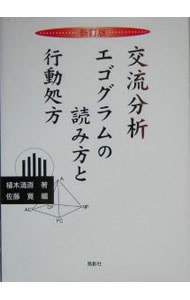 交流分析
エゴグラムの
読み方と
行動処方
植木清直 著
佐藤寛 編
AC
CP
NP
FC
鳥影社